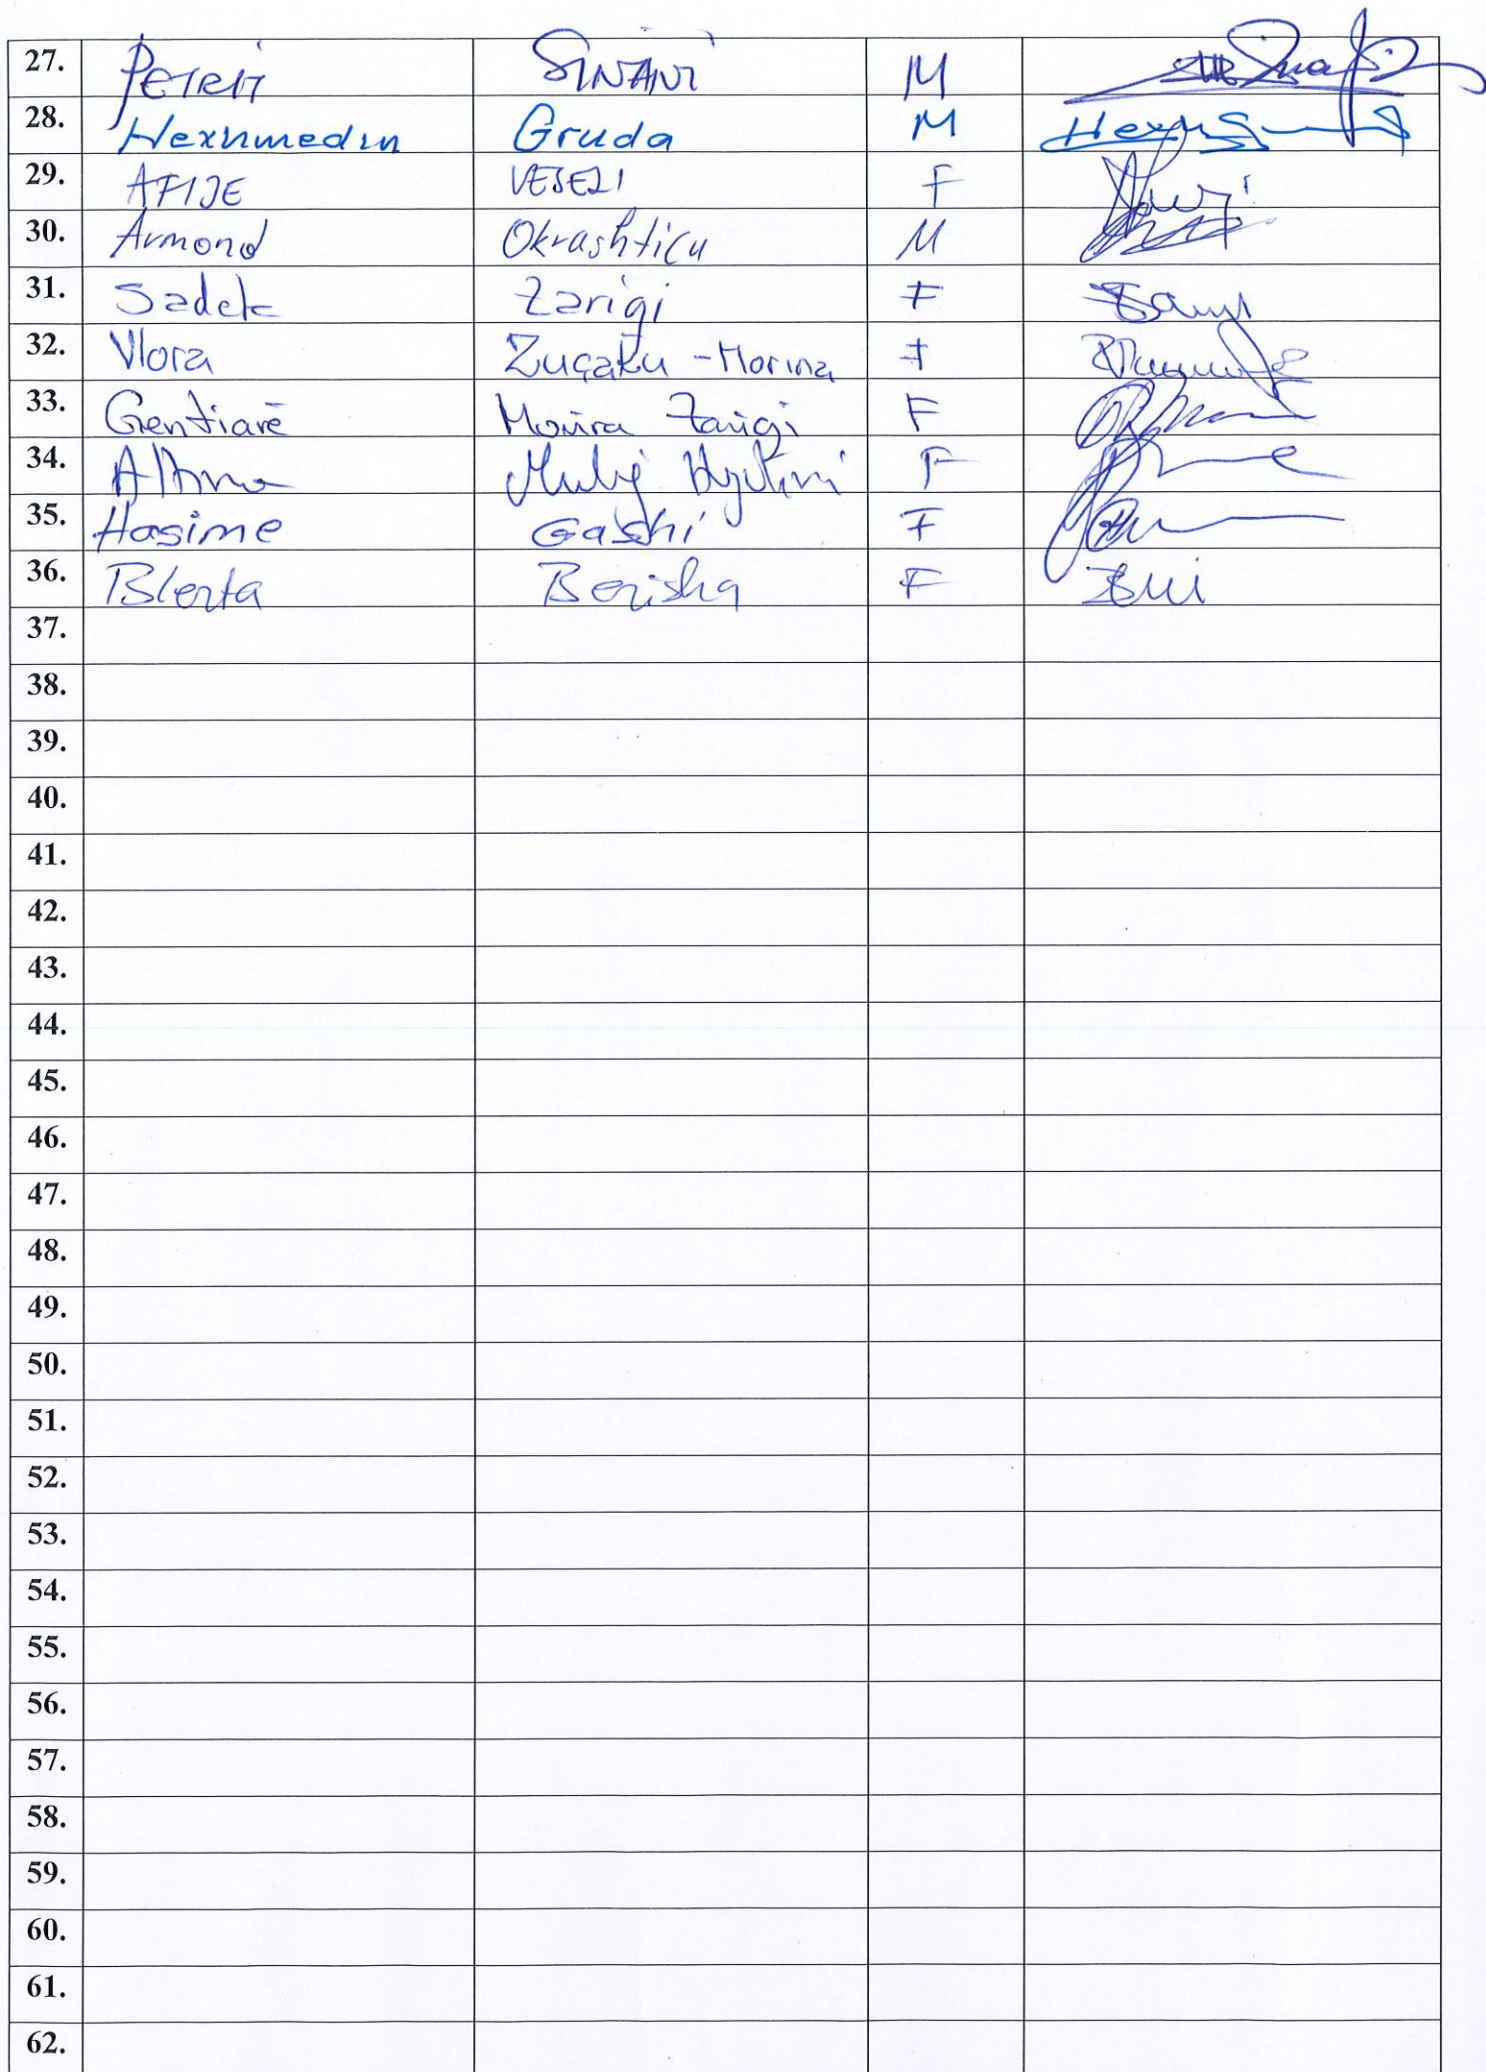 27. PETRIT SINANI M
28. Hexhmedin Gruda M
29. AFIJE VESELI F
30. Armond Okrashticu M
31. Sadek Zariqi F
32. Vlora Zuçaku - Morina F
33. Gentianë Morina Zariqi F
34. F
35. Hasime Gashi F
36. Blerta Berisha F
37.
38.
39.
40.
41.
42.
43.
44.
45.
46.
47.
48.
49.
50.
51.
52.
53.
54.
55.
56.
57.
58.
59.
60.
61.
62.